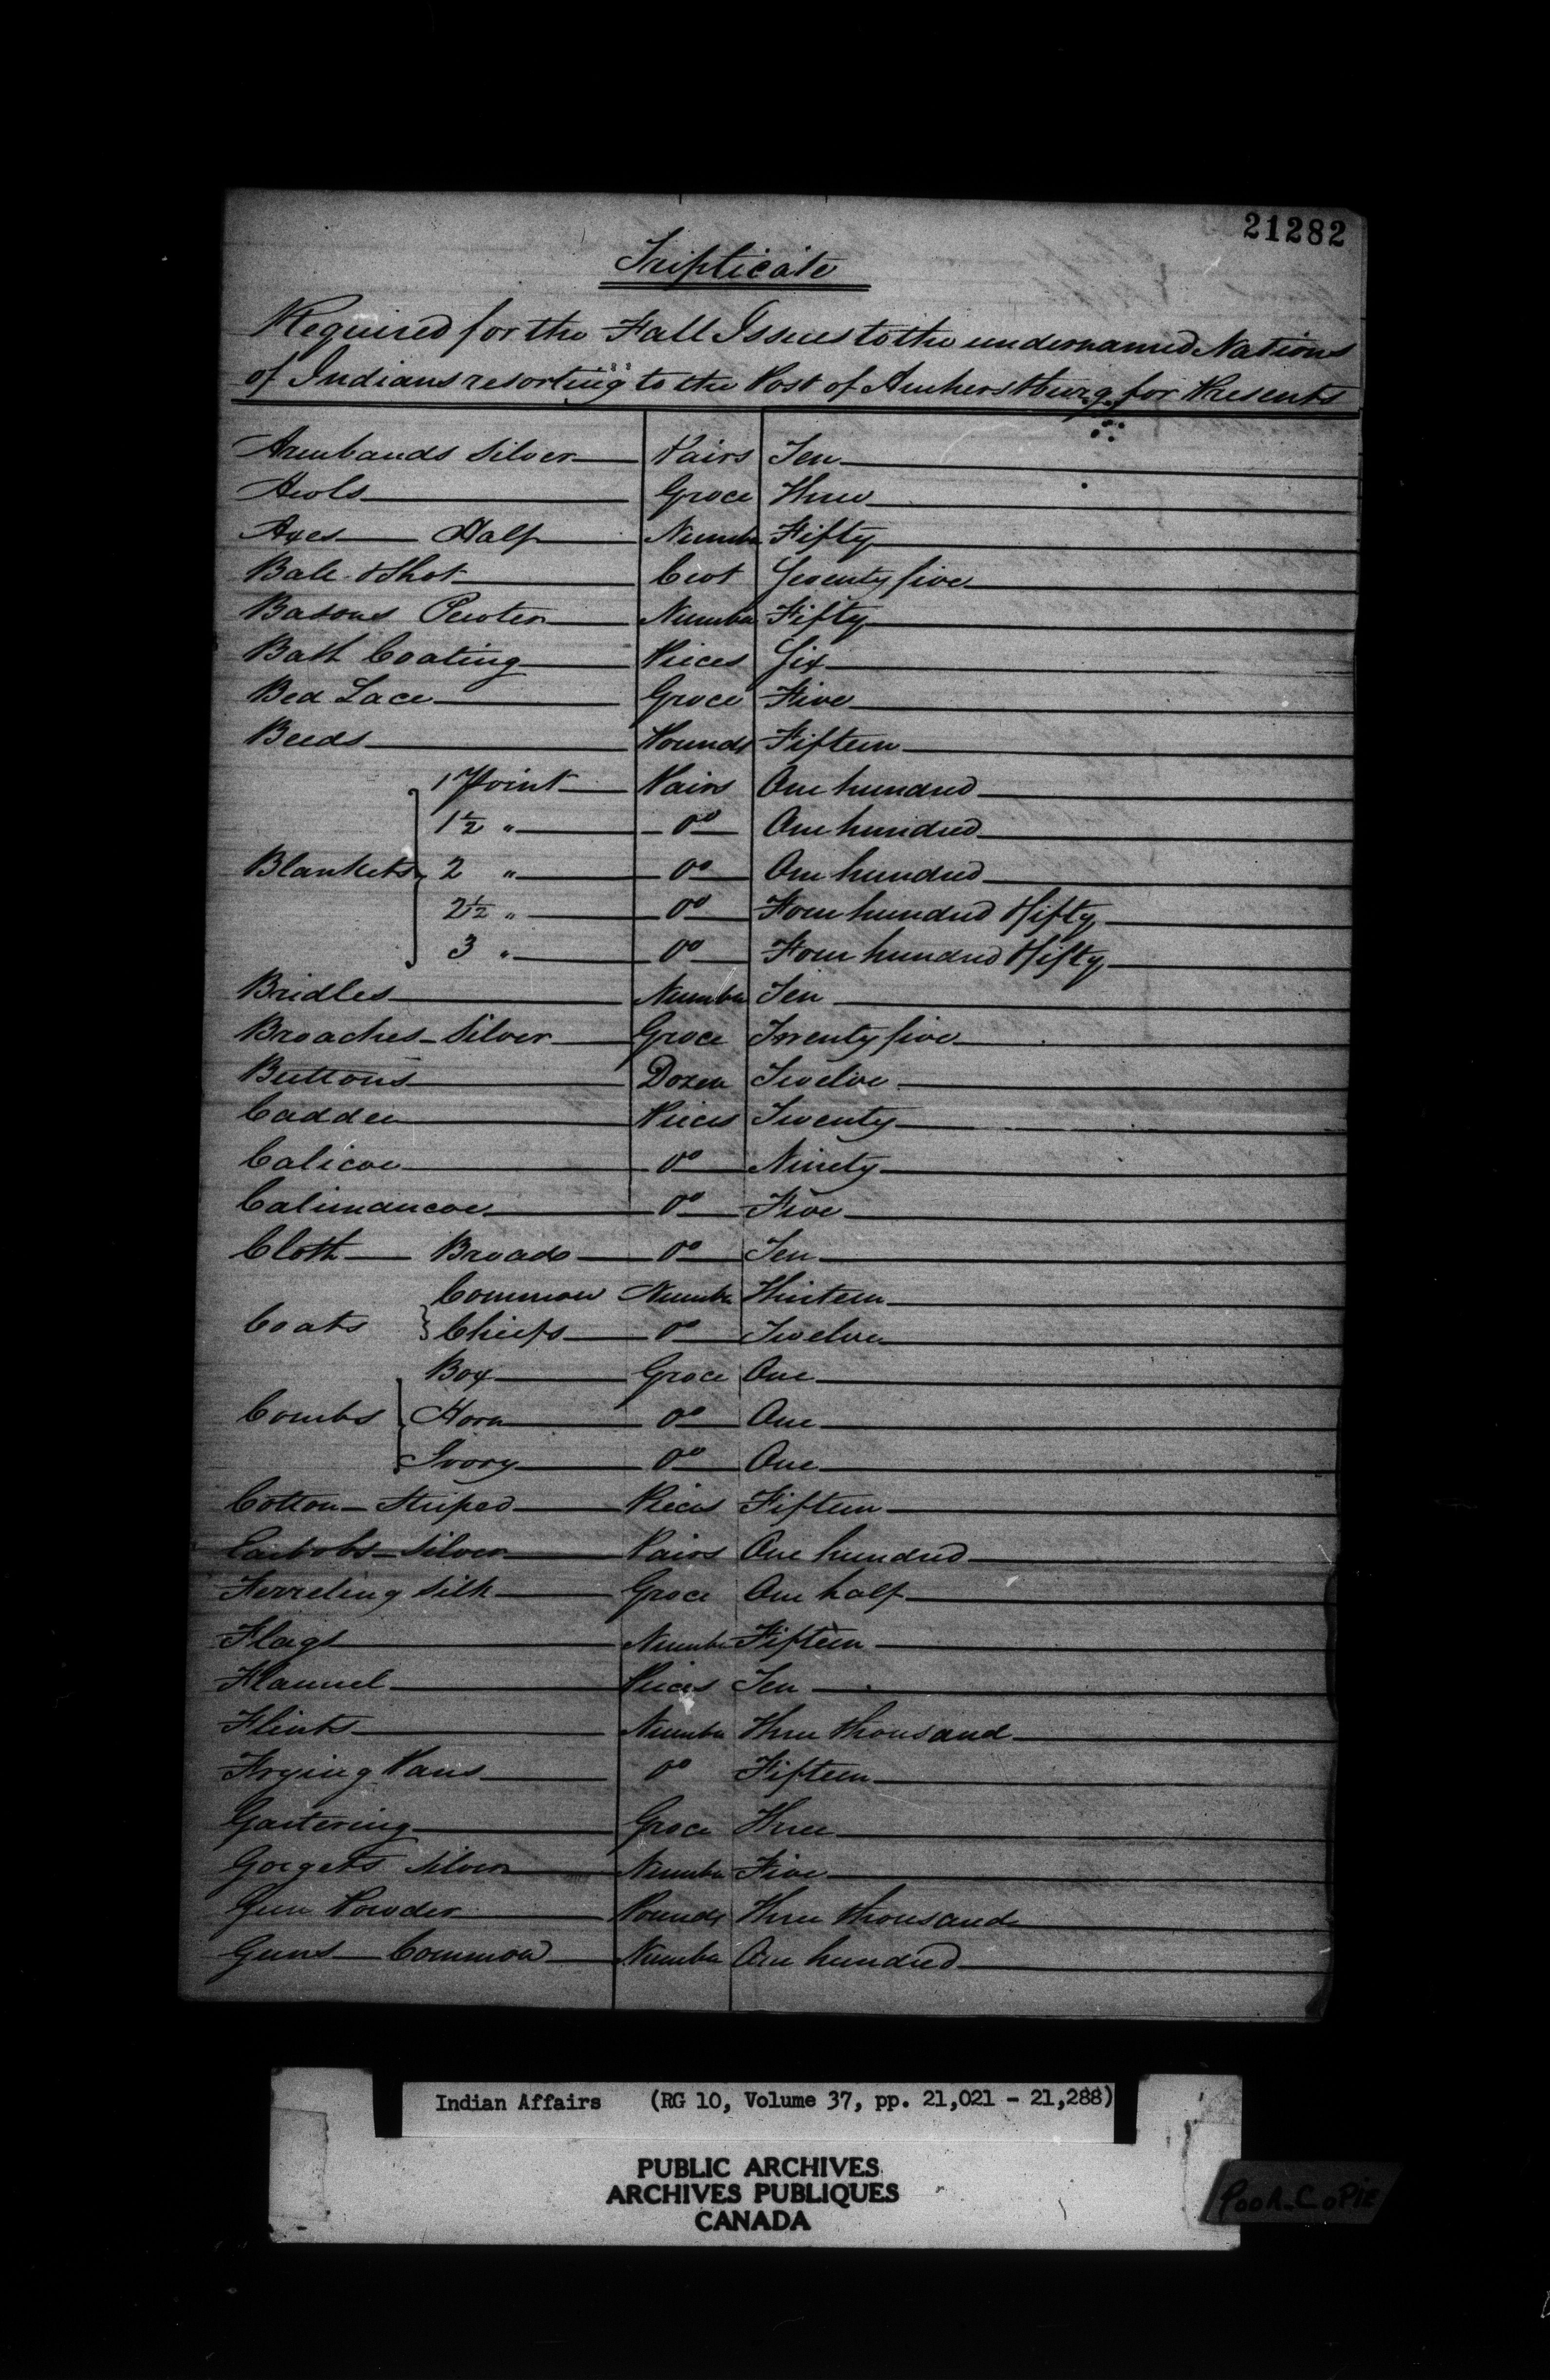 21282
Triplicate
Required for the Fall Issues to the undernamed Nations
of Indians resorting to the Post of Amherstburg for Presents
Armbands Silver Pairs Ten
Awls Groce Three
Axes Half Number Fifty
Ball & Shot Cwt Seventy five
Basons Pewter Number Fifty
Bath Coating Pieces Six
Bed Lace Groce Five
Beeds Pounds Fifteen
1 Point Pairs One hundred
1½ " Do One hundred
Blankets 2 " Do One hundred
2½ " Do Four hundred & fifty
3 " Do Four hundred & fifty
Bridles Number Ten
Broaches Silver Groce Twenty five
Buttons Dozen Twelve
Caddea Pieces Twenty
Calicoe Do Ninety
Calimancoe Do Five
Cloth Broad Do Ten
Common Number Thirteen
Coats Chiefs Do Twelve
Box Groce One
Combs Horn Do One
Ivory Do One
Cotton Striped Pieces Fifteen
Earbobs Silver Pairs One hundred
Ferreling Silk Groce One half
Flags Number Fifteen
Flannel Pieces Ten
Flints Number Three thousand
Frying Pans Do Fifteen
Gartering Groce Three
Gorgets Silver Number Five
Gun Powder Pounds Three thousand
Guns Common Number One hundred
Indian Affairs (RG 10, Volume 37, pp. 21,021 - 21,288)
PUBLIC ARCHIVES
ARCHIVES PUBLIQUES
CANADA
Poor Copie